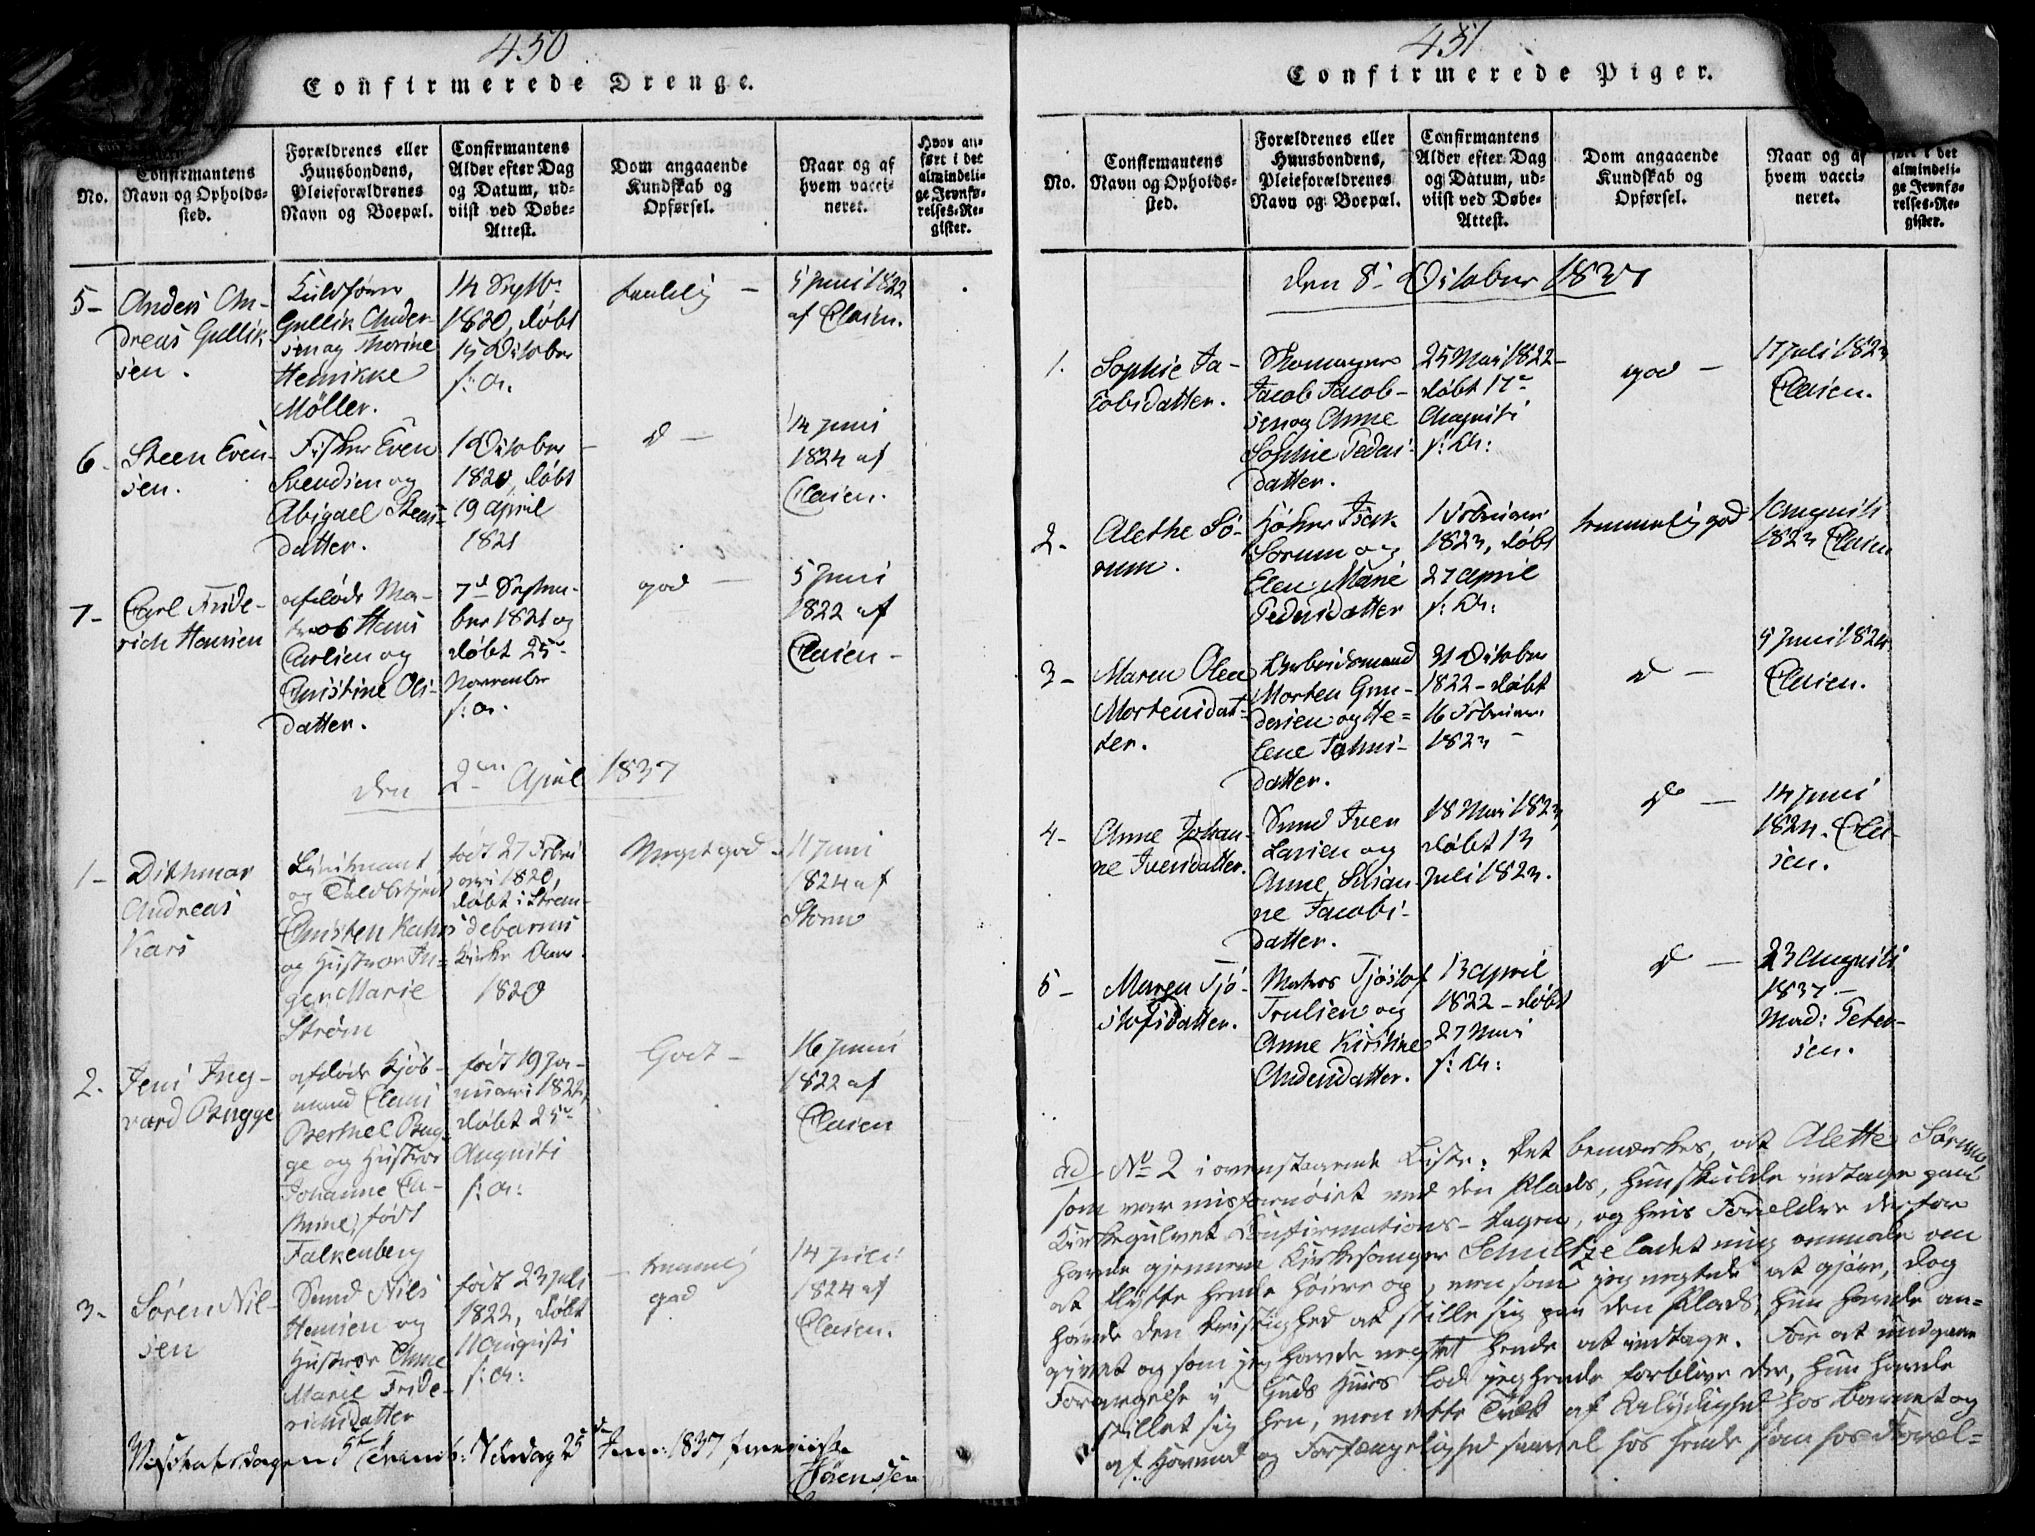 450
Confirmerede Drenge.
No.
Confirmantens
Navn og Opholds-
sted.
Forældrenes eller
Huusbondens,
Pleieforældrenes
Navn og Boepæl.
Confirmantens
Alder efter Dag
og Datum, ud-
viist ved Døbe-
Attest.
Dom angaaende
Kundskab og
Opførsel.
Naar og af
hvem vacci-
neret.
Hvor an-
ført i det
almindeli-
ge Jevnfø-
relses-Re-
gister.
5-
Anders An-
dreas Gullik-
sen.
Gullik Ander-
sen og Thorine
Henrikke
Møller.
14 Septbr
1820, døbt
15 October
s: A.
5 Juni 1822
af Clasen.
6-
Steen Even-
sen.
Fisker Even
Svendsen og
Abigael Steens-
datter.
1 October
1820, døbt
19 April
1821
d -
14 Juni
1824 af
Clasen.
7-
Carl Fride-
rich Hansen
afdøde Ma-
tros Hans
Carlsen og
Christine Ols-
datter.
7de Septem-
ber 1821 og
døbt 25de
November
s: A.
god -
5 Juni
1822 af
Clasen -
Den 2den April 1837
1-
Dithmar
Andreas
Kars
og Toldbetjent
Christen Kahrs
og Hustroe In-
ger Marie
Strøm
født 27 Febru
ari 1820,
døbt i
Kirke
1820
Meget god -
11 Juni
1824 af
Storm
2.
Jens Ing-
vard Bugge
afdøde Kjøb-
mand Claus
Berthel Bug-
ge og Hustroe
Johanne Ca-
thrine, født
Falkenberg
født 19 Ja-
nuari 1822,
døbt 25de
Augusti
s: A:
Godt -
16 Juni
1822 af
Clasen
3-
Søren Nil-
sen
Smed Nils
Hansen og
Hustroe Anne
Marie Fride-
richsdatter
født 23 Juli
1822, døbt
11 Augusti
s: A:
temmelig
god
14 Juli
1824 af
Clasen.
25 1837
Sörenssen
451
Confirmerede Piger.
No.
Confirmantens
Navn og Opholds-
sted.
Forældrenes eller
Huusbondens,
Pleieforældrenes
Navn og Boepæl.
Confirmantens
Alder efter Dag
og Datum, ud-
viist ved Døbe-
Attest.
Dom angaaende
Kundskab og
Opførsel.
Naar og af
hvem vacci-
neret.
ført i det
almindeli-
ge Jevnfø-
relses-Re-
gister.
Den 8de October 1837
1.
Sophie Ja-
cobsdatter.
Skomager
Jacob Jacob-
sen og Anne
Sophie Peders-
datter.
25 Mai 1822-
døbt 17de
Augusti
s: A:
god -
17 Juli 1823
Clasen.
2-
Alethe Sö-
rum.
Høker Isak
Sorum og
Elen Marie
Pedersdatter
1 Februar
1823, døbt
27 April
s: A:
temmelig god
1 Augusti
1823 Clasen
3-
Maren Olea
Mortensdat-
ter.
Arbeidsmand
Morten Gun-
dersen og He-
lene Johns-
datter.
31 October
1822 - døbt
16 Februar
1823 -
d -
5 Juni 1824
Clasen.
4-
Anne Johan-
ne Iversdatter.
Smed Iver
Larsen og
Anne Susan-
ne Jacobs-
datter.
18 Mai 1823,
døbt 13
Juli 1823.
do -
14 Juni
1824. Cla-
sen.
5-
Maren Tjö-
stofsdatter.
Matros Tjöstof
Trulsen og
Anne Kirstine
Andersdatter.
13 April
1822 - døbt
27 Mai
s: A:
d -
23 Augusti
1837 -
Mad: Peter-
sen.
ad No 2 i ovenstaaende Liste: Det bemærkes, at Alette Sørum
som var misfornøiet med den Plads, hun skulde indtage paa
Kirkegulvet Confirmations-Dagen, og hvis Forældre derfor
havde gjennem Kirkesanger Schultze ladet mig anmode om
at flytte hende høiere op, men som jeg negtede at gjøre, dog
havde den Dristighed at stille sig paa den Plads, hun havde an-
givet og som jeg havde negtet hende at indtage. For at undgaae
Forargelse i Guds Huus lod jeg hende forblive der, hun havde
stillet sig hen, men dette Træk af Ulydighed hos Barnet og
af Hovmod og Forfængelighed saavel hos hende som hos Foræl-